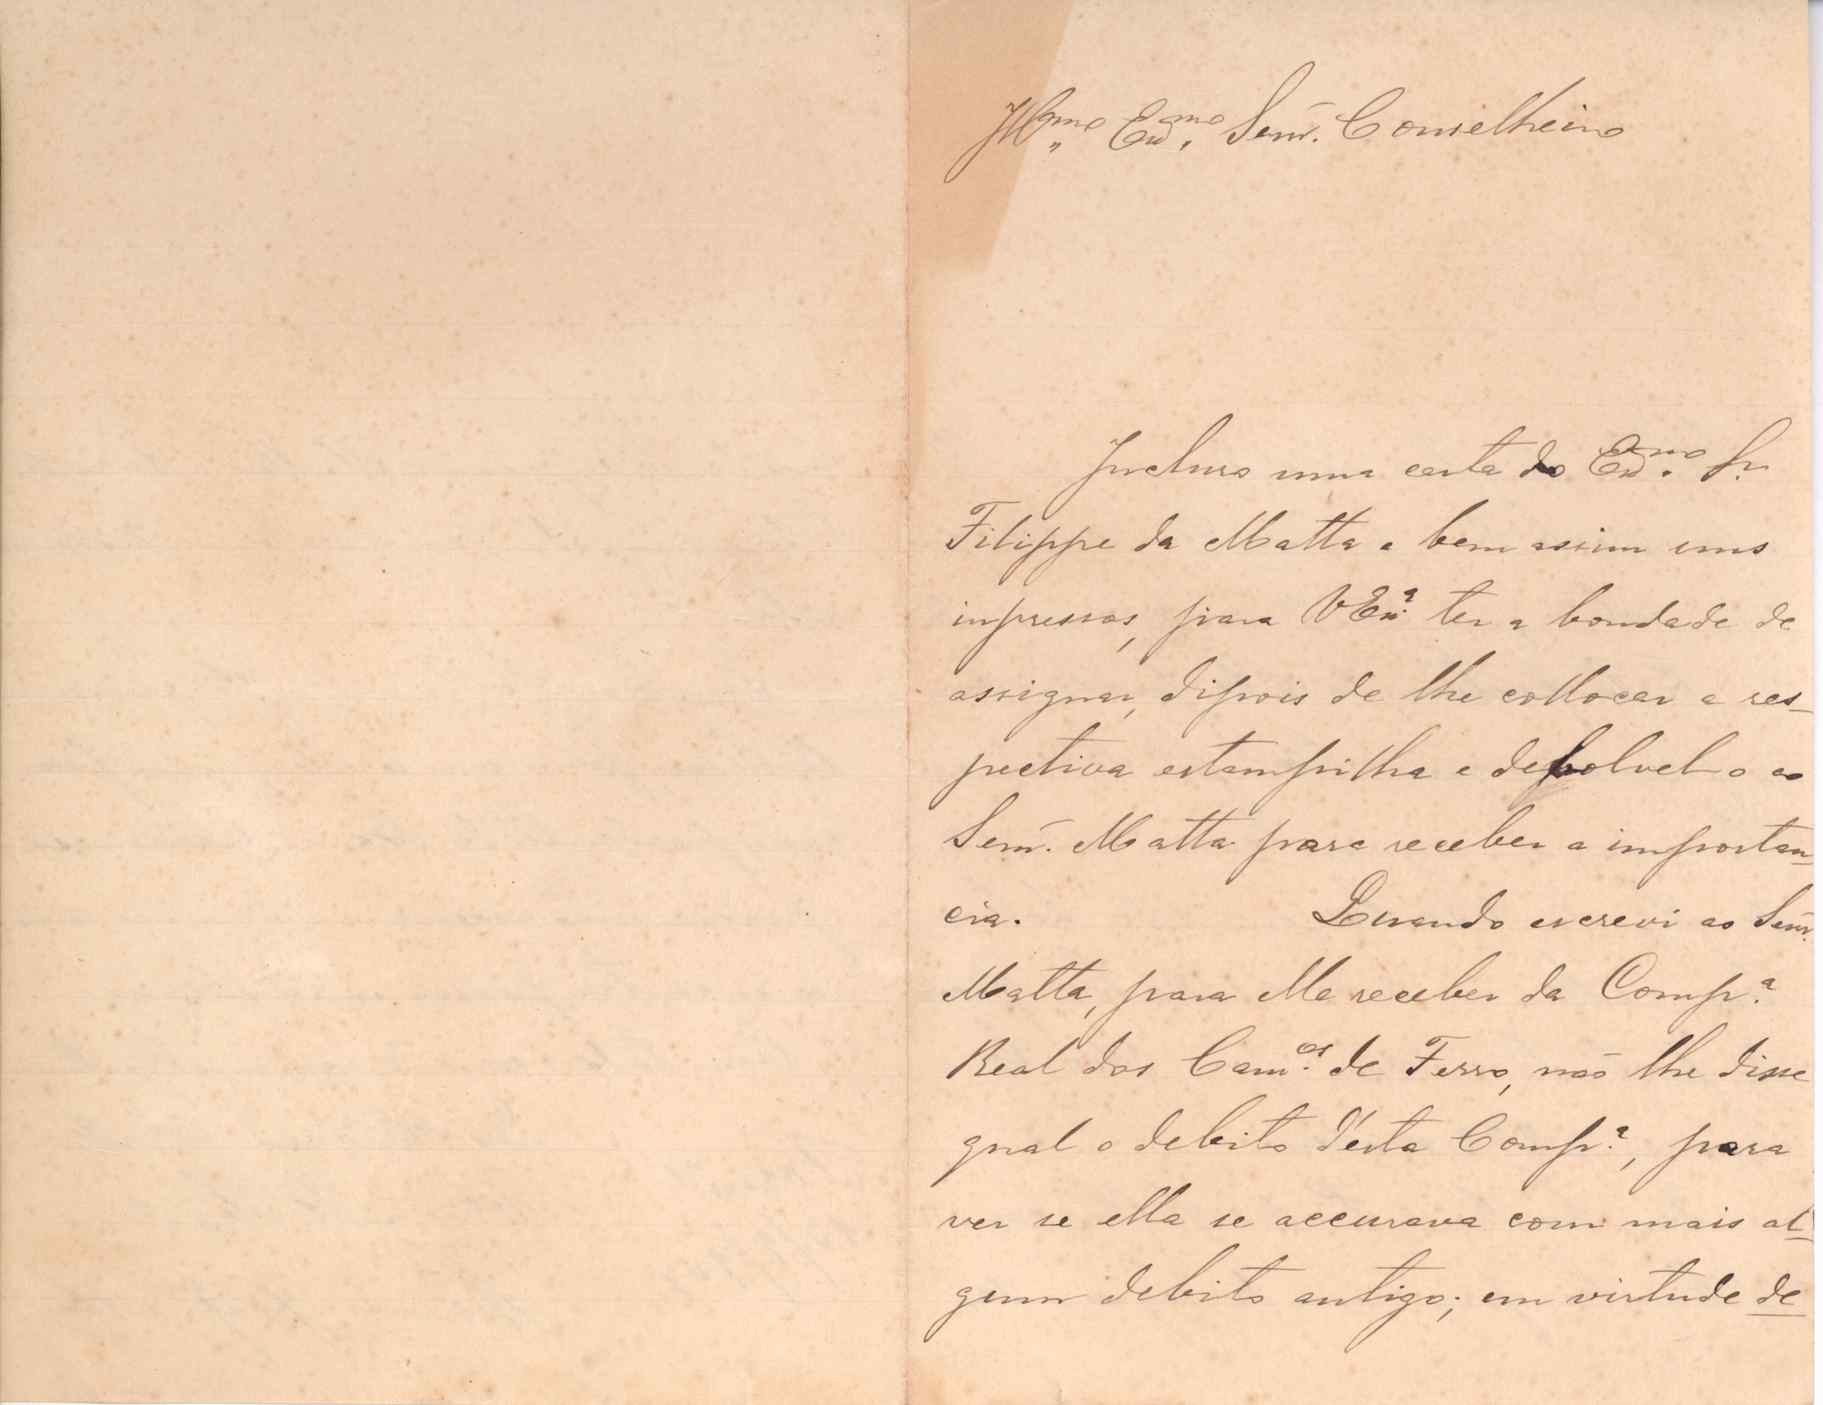 Illmo Exmo Senr. Conselheiro
Incluso uma carta do Exmo Sr.
Filippe da Matta e bem assim uns
inpressos, para VExª ter a bondade de
assignar, dipois de lhe collocar a res-
pectiva estampilha e devolvel o ao
Senr. Matta para receber a importan-
cia. Quando escrevi ao Senr.
Matta, para elle receber da Compª
Real dos Camos de Ferro, não lhe disse
qual o debito d'esta Compª, para
ver se ella se accusava com mais al-
gum debito antigo; em virtude de